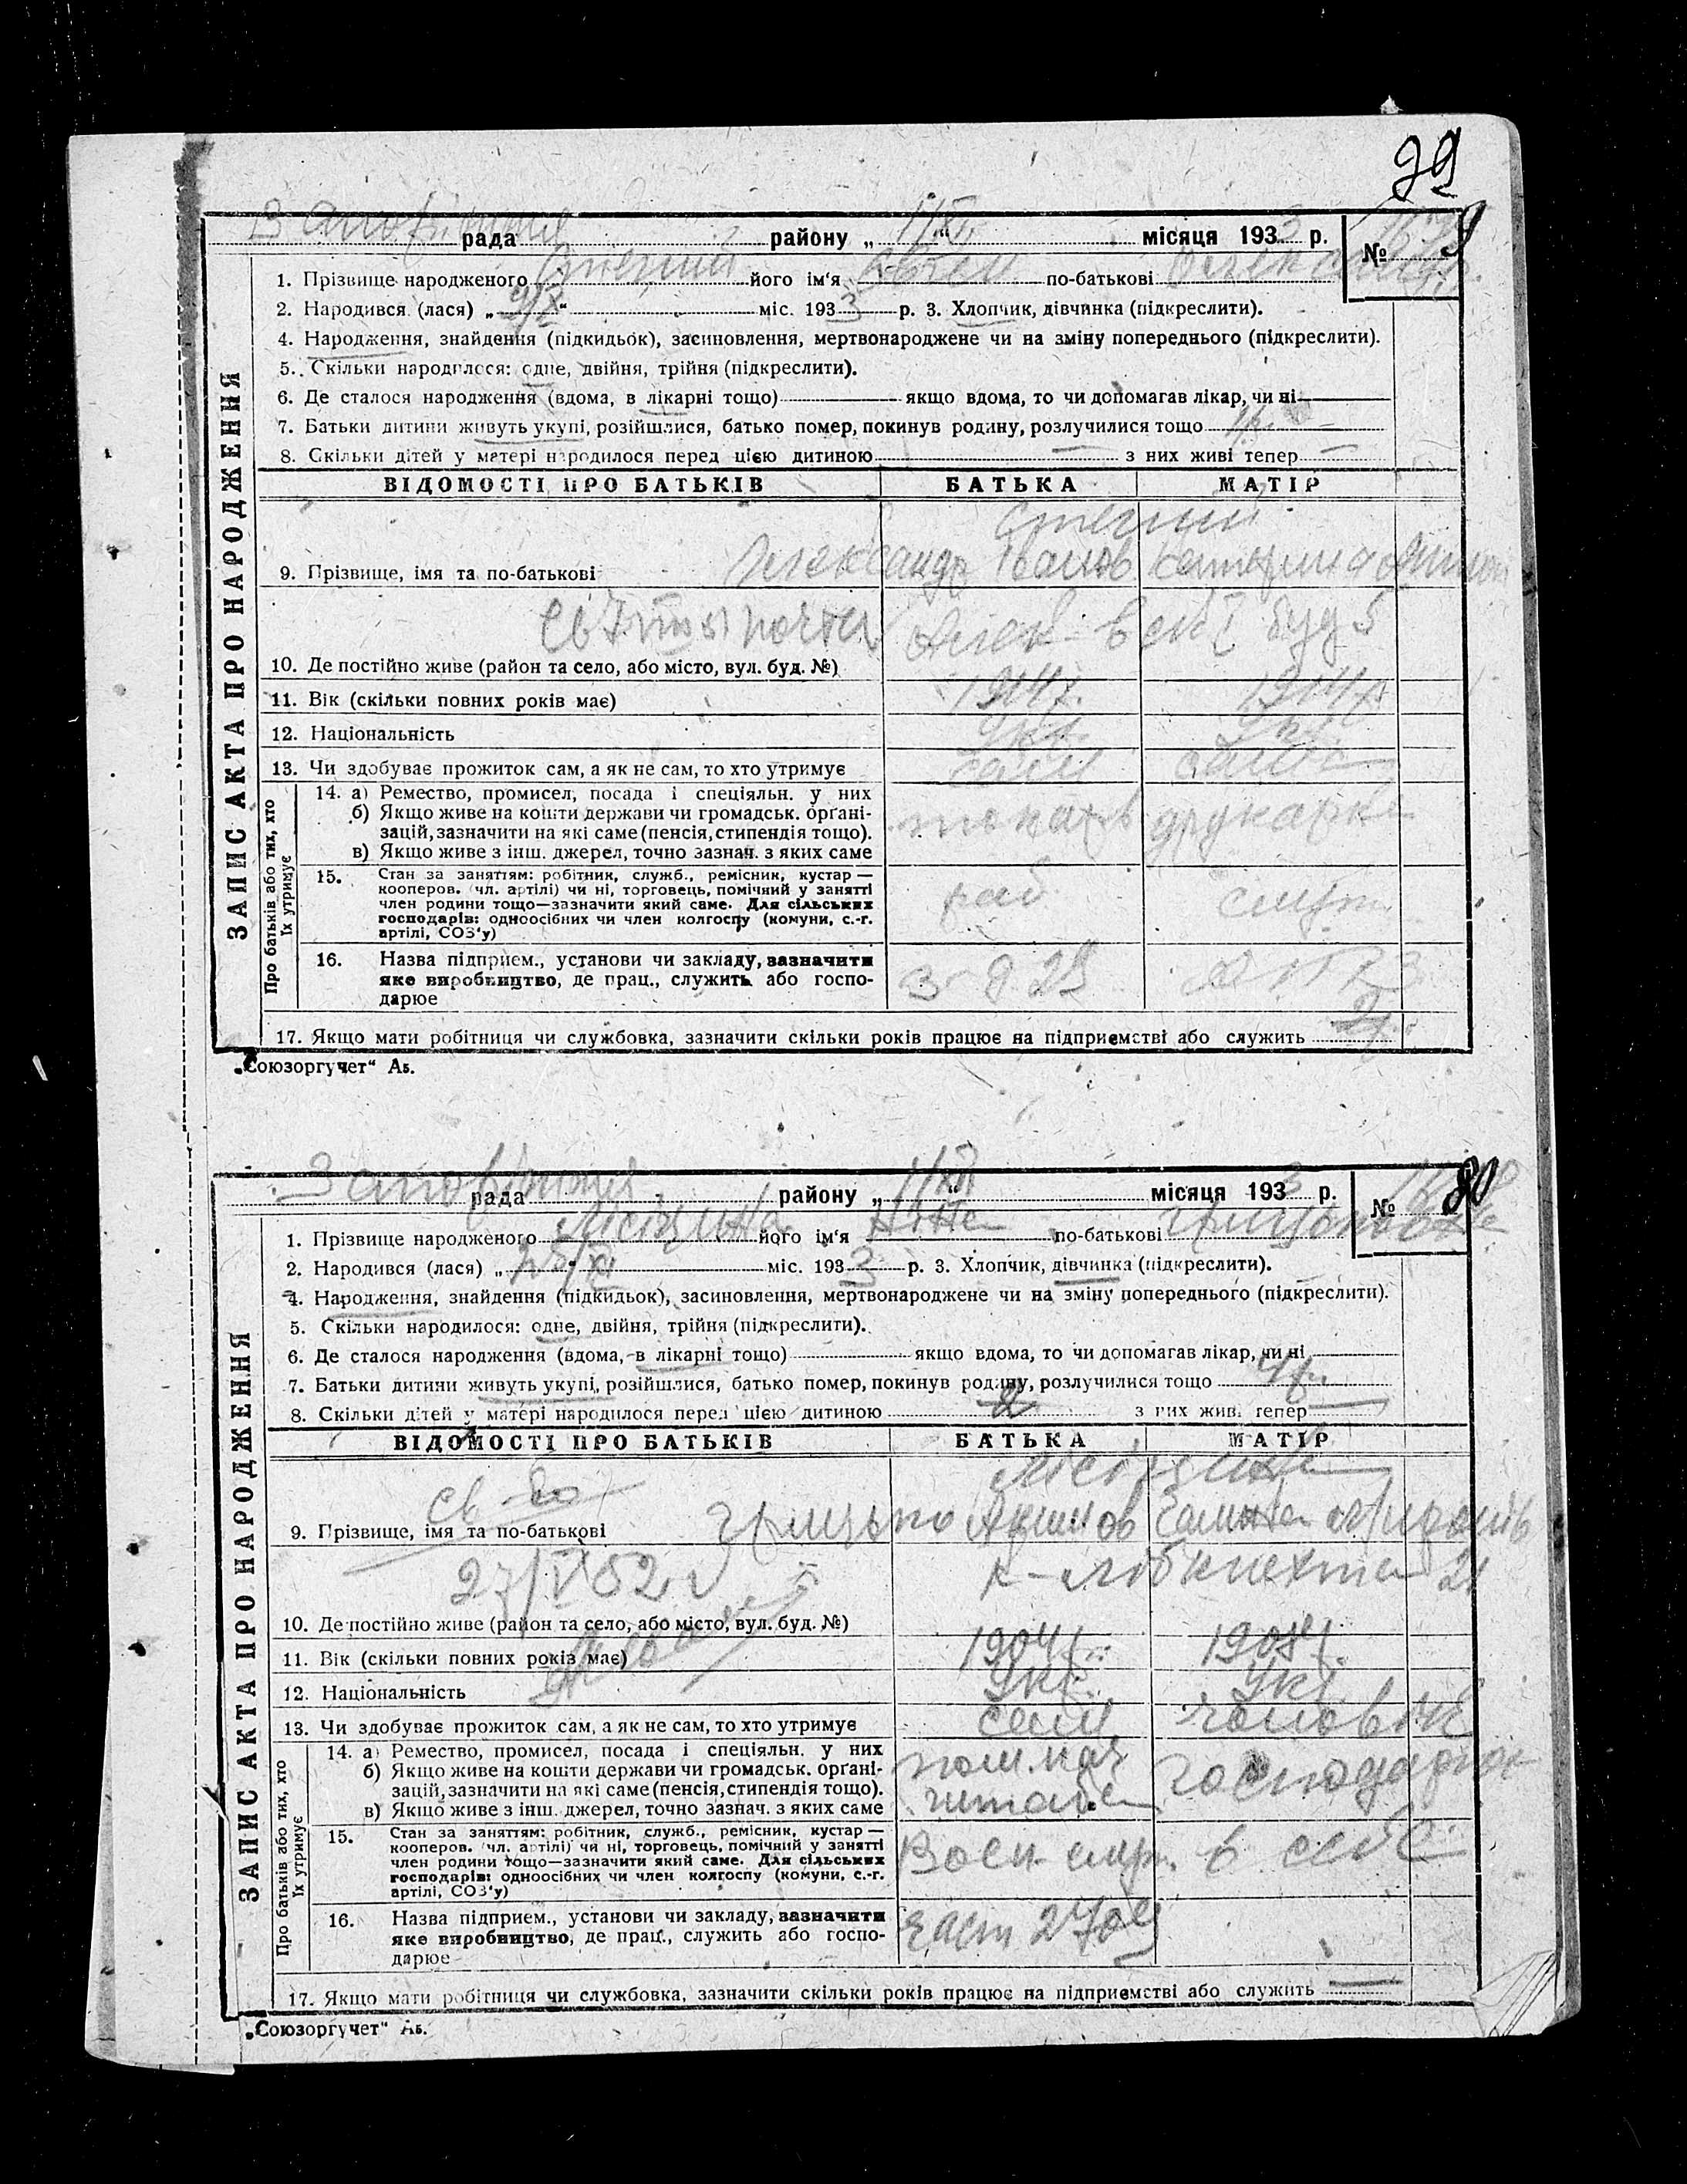 79
рада району „ 11/XII “ місяця 1933 р. №
1. Прізвище народженого його ім‘я по-батькові
2. Народився (лася) „ “ міс. 1933 р. 3. Хлопчик, дівчинка (підкреслити).
4. Народження, знайдення (підкидьок), засиновлення, мертвонароджене чи на зміну попереднього (підкреслити).
5. Скільки народилося: одне, двійня, трійня (підкреслити).
6. Де сталося народження (вдома, в лікарні тощо) якщо вдома, то чи допомагав лікар, чи ні
7. Батьки дитини живуть укупі, розійшлися, батько помер, покинув родину, розлучилися тощо
8. Скільки дітей у матері народилося перед цією дитиною — з них живі тепер —
ЗАПИС АКТА ПРО НАРОДЖЕННЯ
ВІДОМОСТІ ПРО БАТЬКІВ БАТЬКА МАТІР
Олександр Іванов Катерина
9. Прізвище, імя та по-батькові
буд 5
10. Де постійно живе (район та село, або місто, вул. буд. №)
11. Вік (скільки повних років має) 1914р. 1914р
12. Національність Укр. Укр.
13. Чи здобуває прожиток сам, а як не сам, то хто утримує сам сама
Про батьків або тих, хто їх утримує
14. а) Ремество, промисел, посада і спеціяльн. у них
б) Якщо живе на кошти держави чи громадськ. органі-
зацій, зазначити на які саме (пенсія, стипендія тощо). токарь друкарка
в) Якщо живе з інш. джерел, точно зазнач. з яких саме
15. Стан за заняттям: робітник, служб., ремісник, кустар —
кооперов. (чл. артілі) чи ні, торговець, помічний у занятті
член родини тощо—зазначити який саме. Для сільських раб. служ.
господарів: одноосібних чи член колгоспу (комуни, с.-г.
артілі, СОЗ‘у)
16. Назва підприєм., установи чи закладу, зазначити
яке виробництво, де прац., служить або госпо- 29
дарює
17. Якщо мати робітниця чи службовка, зазначити скільки років працює на підприємстві або служить
„Союзоргучет“ Аб.
рада району „ 11/XII “ місяця 1933 р. № 80
1. Прізвище народженого Лісіцина його ім‘я Ніна по-батькові
2. Народився (лася) „ 25/XI “ міс. 1933 р. 3. Хлопчик, дівчинка (підкреслити).
4. Народження, знайдення (підкидьок), засиновлення, мертвонароджене чи на зміну попереднього (підкреслити).
5. Скільки народилося: одне, двійня, трійня (підкреслити).
6. Де сталося народження (вдома, в лікарні тощо) якщо вдома, то чи допомагав лікар, чи ні
7. Батьки дитини живуть укупі, розійшлися, батько помер, покинув родину, розлучилися тощо
8. Скільки дітей у матері народилося перед цією дитиною з них живі тепер —
ЗАПИС АКТА ПРО НАРОДЖЕННЯ
ВІДОМОСТІ ПРО БАТЬКІВ БАТЬКА МАТІР
св-во
Грицько Акимов
9. Прізвище, імя та по-батькові
К-Лібкнехта 21
10. Де постійно живе (район та село, або місто, вул. буд. №)
11. Вік (скільки повних років має) 1904р.
12. Національність Укр. Укр.
13. Чи здобуває прожиток сам, а як не сам, то хто утримує сам чоловік
Про батьків або тих, хто їх утримує
14. а) Ремество, промисел, посада і спеціяльн. у них
б) Якщо живе на кошти держави чи громадськ. органі- пом. нач господарка
зацій, зазначити на які саме (пенсія, стипендія тощо). штаба
в) Якщо живе з інш. джерел, точно зазнач. з яких саме
15. Стан за заняттям: робітник, служб., ремісник, кустар —
кооперов. (чл. артілі) чи ні, торговець, помічний у занятті
член родини тощо—зазначити який саме. Для сільських Воен. служ. в себе
господарів: одноосібних чи член колгоспу (комуни, с.-г.
артілі, СОЗ‘у)
16. Назва підприєм., установи чи закладу, зазначити
яке виробництво, де прац., служить або госпо-
дарює
17. Якщо мати робітниця чи службовка, зазначити скільки років працює на підприємстві або служить —
„Союзоргучет“ Аб.